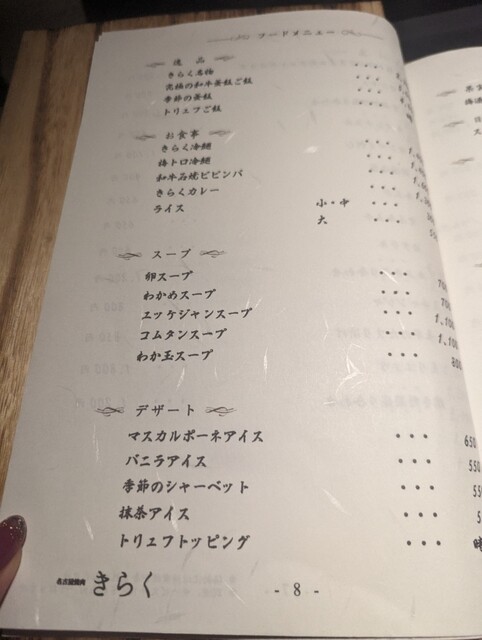 フードメニュー
逸品
きらく名物
究極の和牛釜飯ご飯
季節の釜飯
トリュフご飯
お食事
きらく冷麺 ・・・
梅トロ冷麺 ・・・
和牛石焼ビビンバ ・・・
きらくカレー ・・・
ライス 小・中 ・・・
大 ・・・
スープ
卵スープ ・・・
わかめスープ ・・・
ユッケジャンスープ ・・・ 1,100
コムタンスープ ・・・ 1,100
わか玉スープ ・・・ 800
デザート
マスカルポーネアイス ・・・ 650
バニラアイス ・・・ 550
季節のシャーベット ・・・
抹茶アイス ・・・
トリュフトッピング ・・・ 時
名古屋焼肉 きらく
- 8 -